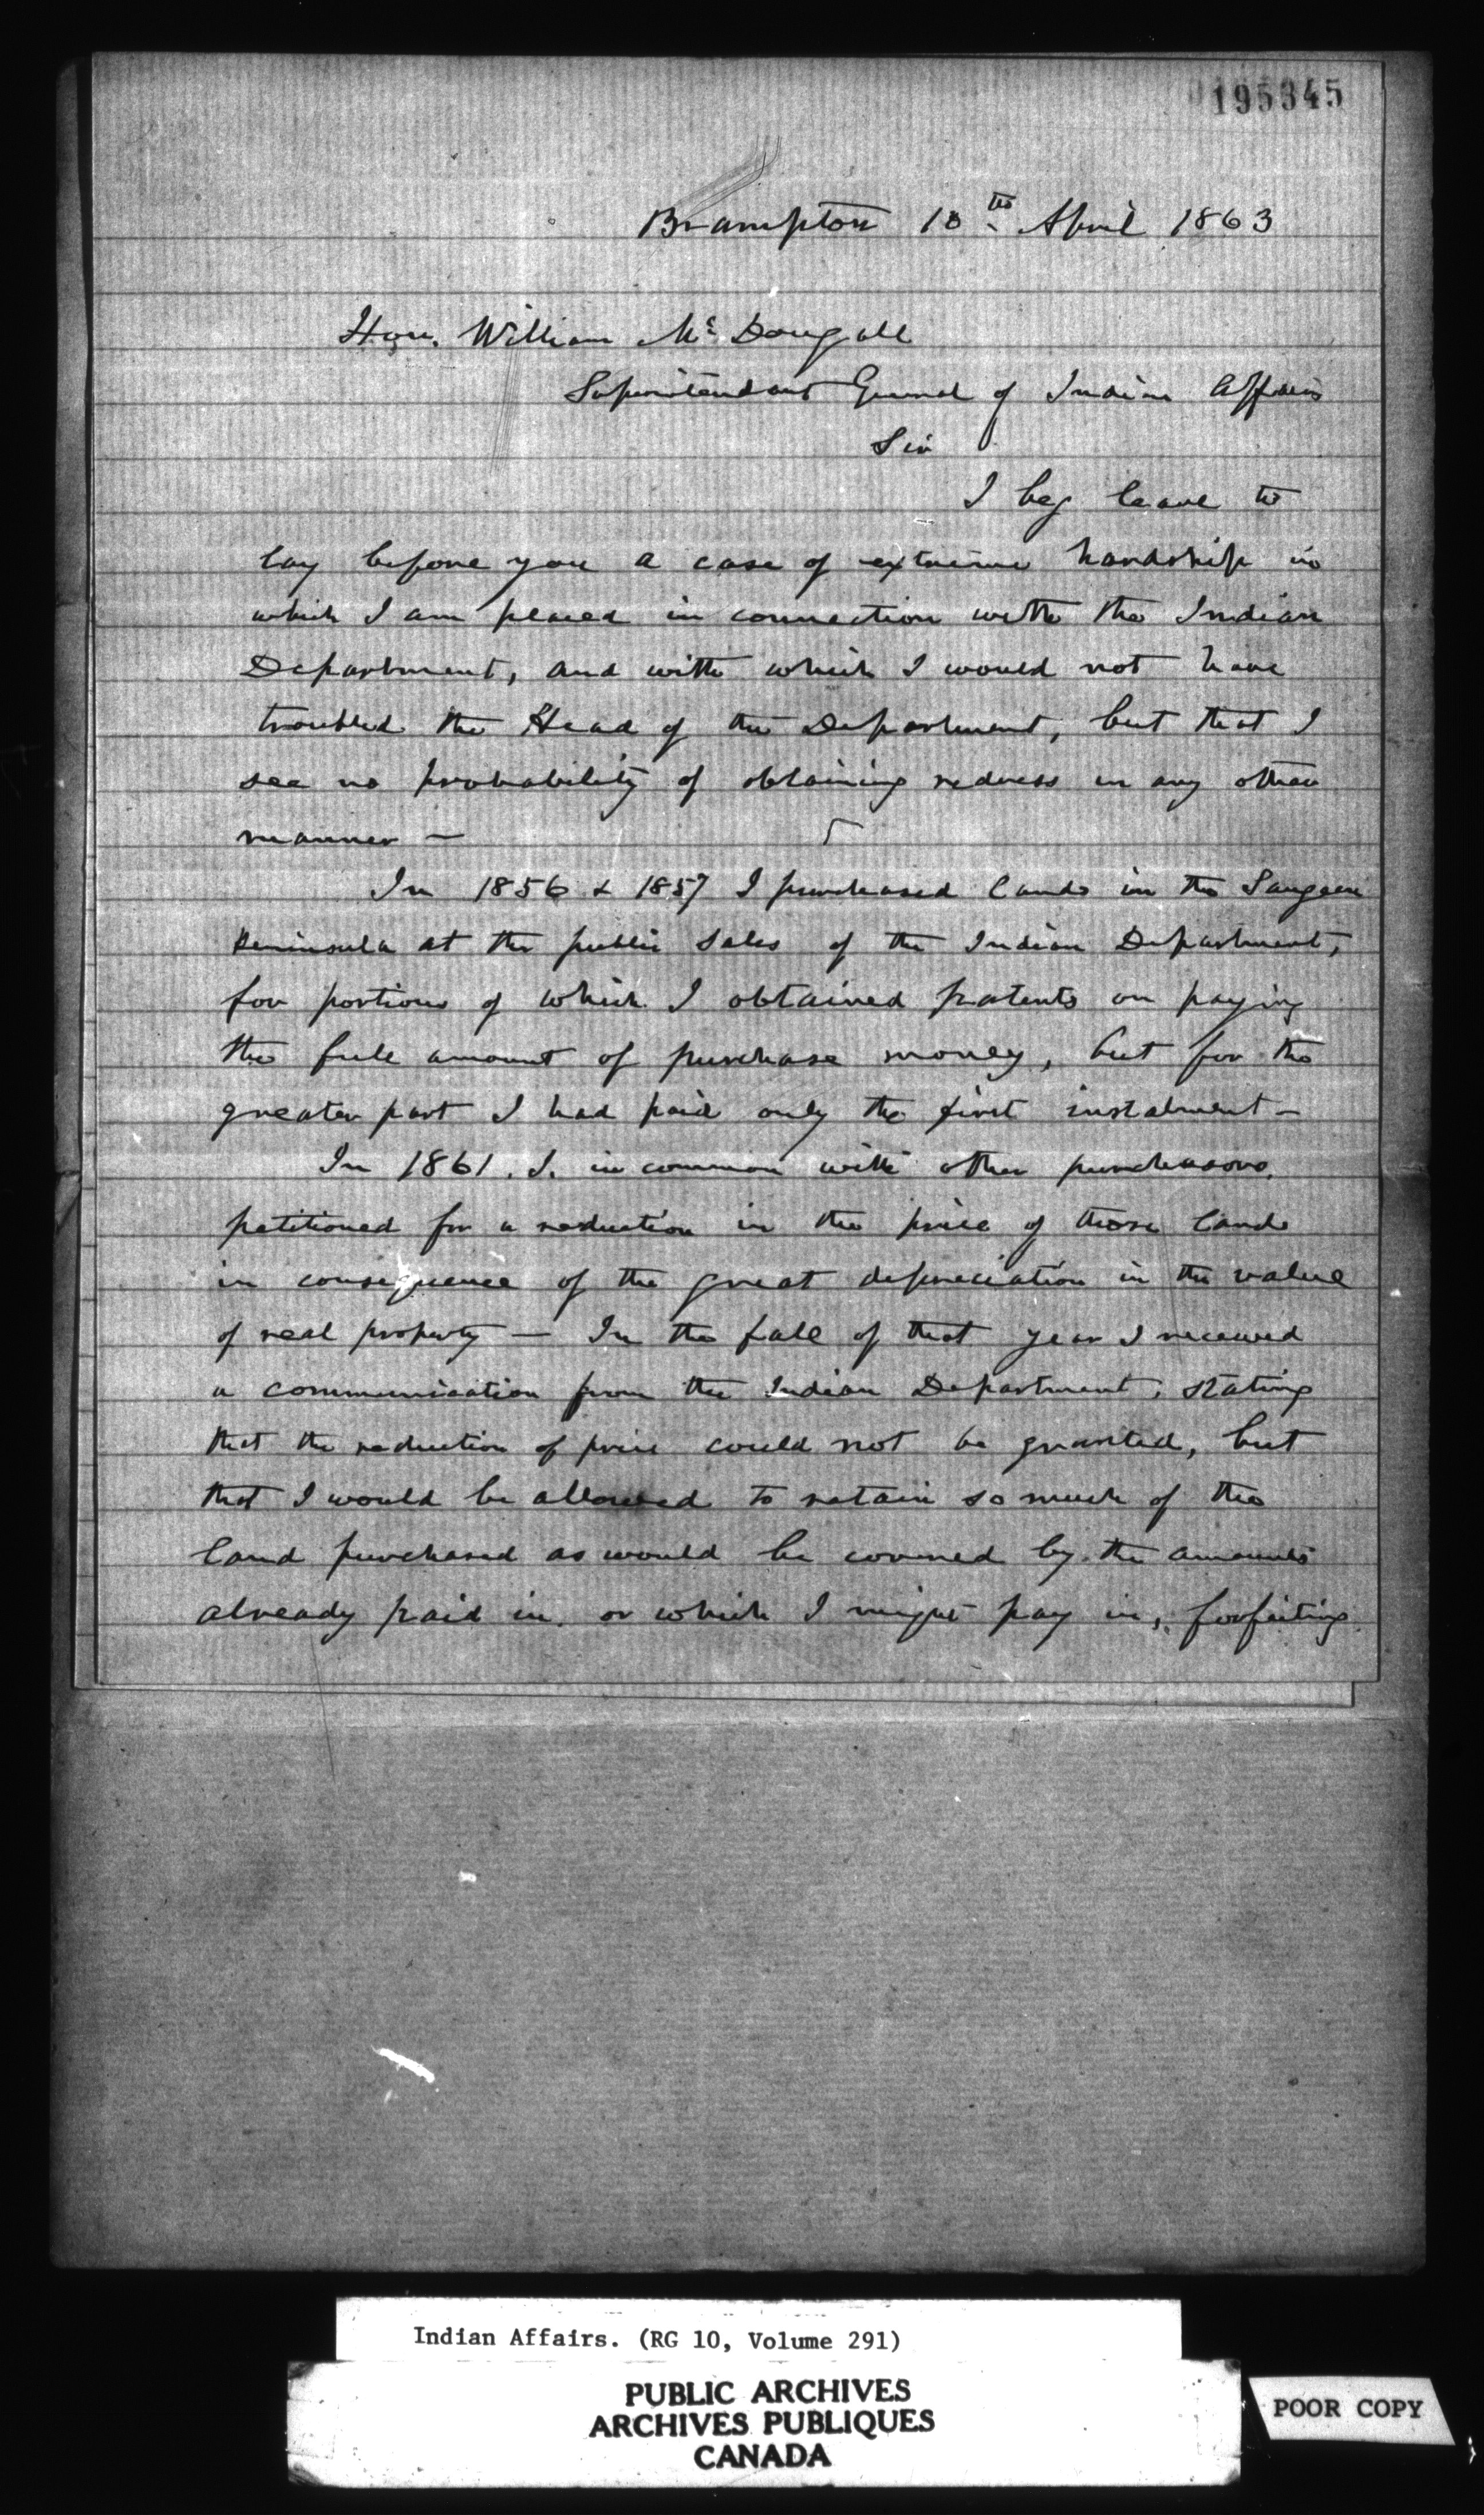 195345
Brampton 10th April 1863
Hon. William McDougall
Superintendant General of Indian Affairs
Sir
I beg leave to
lay before you a case of extreme hardship in
which I am placed in connection with the Indian
Department, and with which I would not have
troubled the Head of the Department, but that I
see no probability of obtaining redress in any other
manner —
In 1856 & 1857 I purchased lands in the Saugeen
Peninsula at the public sales of the Indian Department,
for portions of which I obtained patents on paying
the full amount of purchase money, but for the
greater part I had paid only the first instalment —
In 1861. I. in common with other purchasers,
petitioned for a reduction in the price of those lands
in consequence of the great depreciation in the value
of real property — In the fall of that year I received
a communication from the Indian Department, stating
that the reduction of price could not be granted, but
that I would be allowed to retain so much of the
land purchased as would be covered by the amounts
already paid in, or which I might pay in, forfeiting
Indian Affairs. (RG 10, Volume 291)
PUBLIC ARCHIVES
ARCHIVES PUBLIQUES
CANADA
POOR COPY